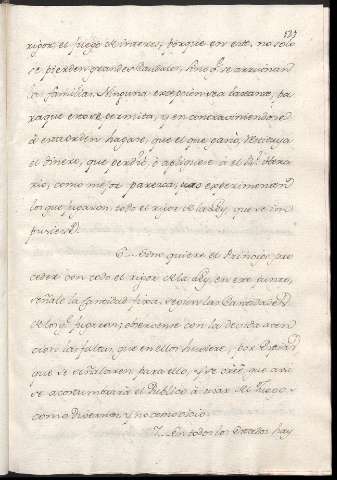 137
rigor, el fuego de interes, porque en este, no solo
se pierden grandes Caudales, sino q.e se arruinan
las familias. Ninguna excepcion sea bastante, pa
raque este se permita, y en contraviniendose
à esta orden hagase, que el que ganò, restituya
el dinero, que perdiò, ò apliquese à el R.l Hera
rio, como mejor parezca, experimentan
los que jugaron todo el rigor de la Ley, que se im
pusiere.
6. Si no quiere el Principe pro
ceder con todo el rigor de la Ley, en este punto,
señale la Cantidad fixa, segun las Cantidades
de los q.e jugaren; observese con la devida aten
cion las faltas, que en ellos hubiere, por
que se señalaren para ello, y se crèe, que assi
se acostumbrarà el Publico à usar del Juego
como Diversion, y no como vicio.
7. En todos los Estados hay